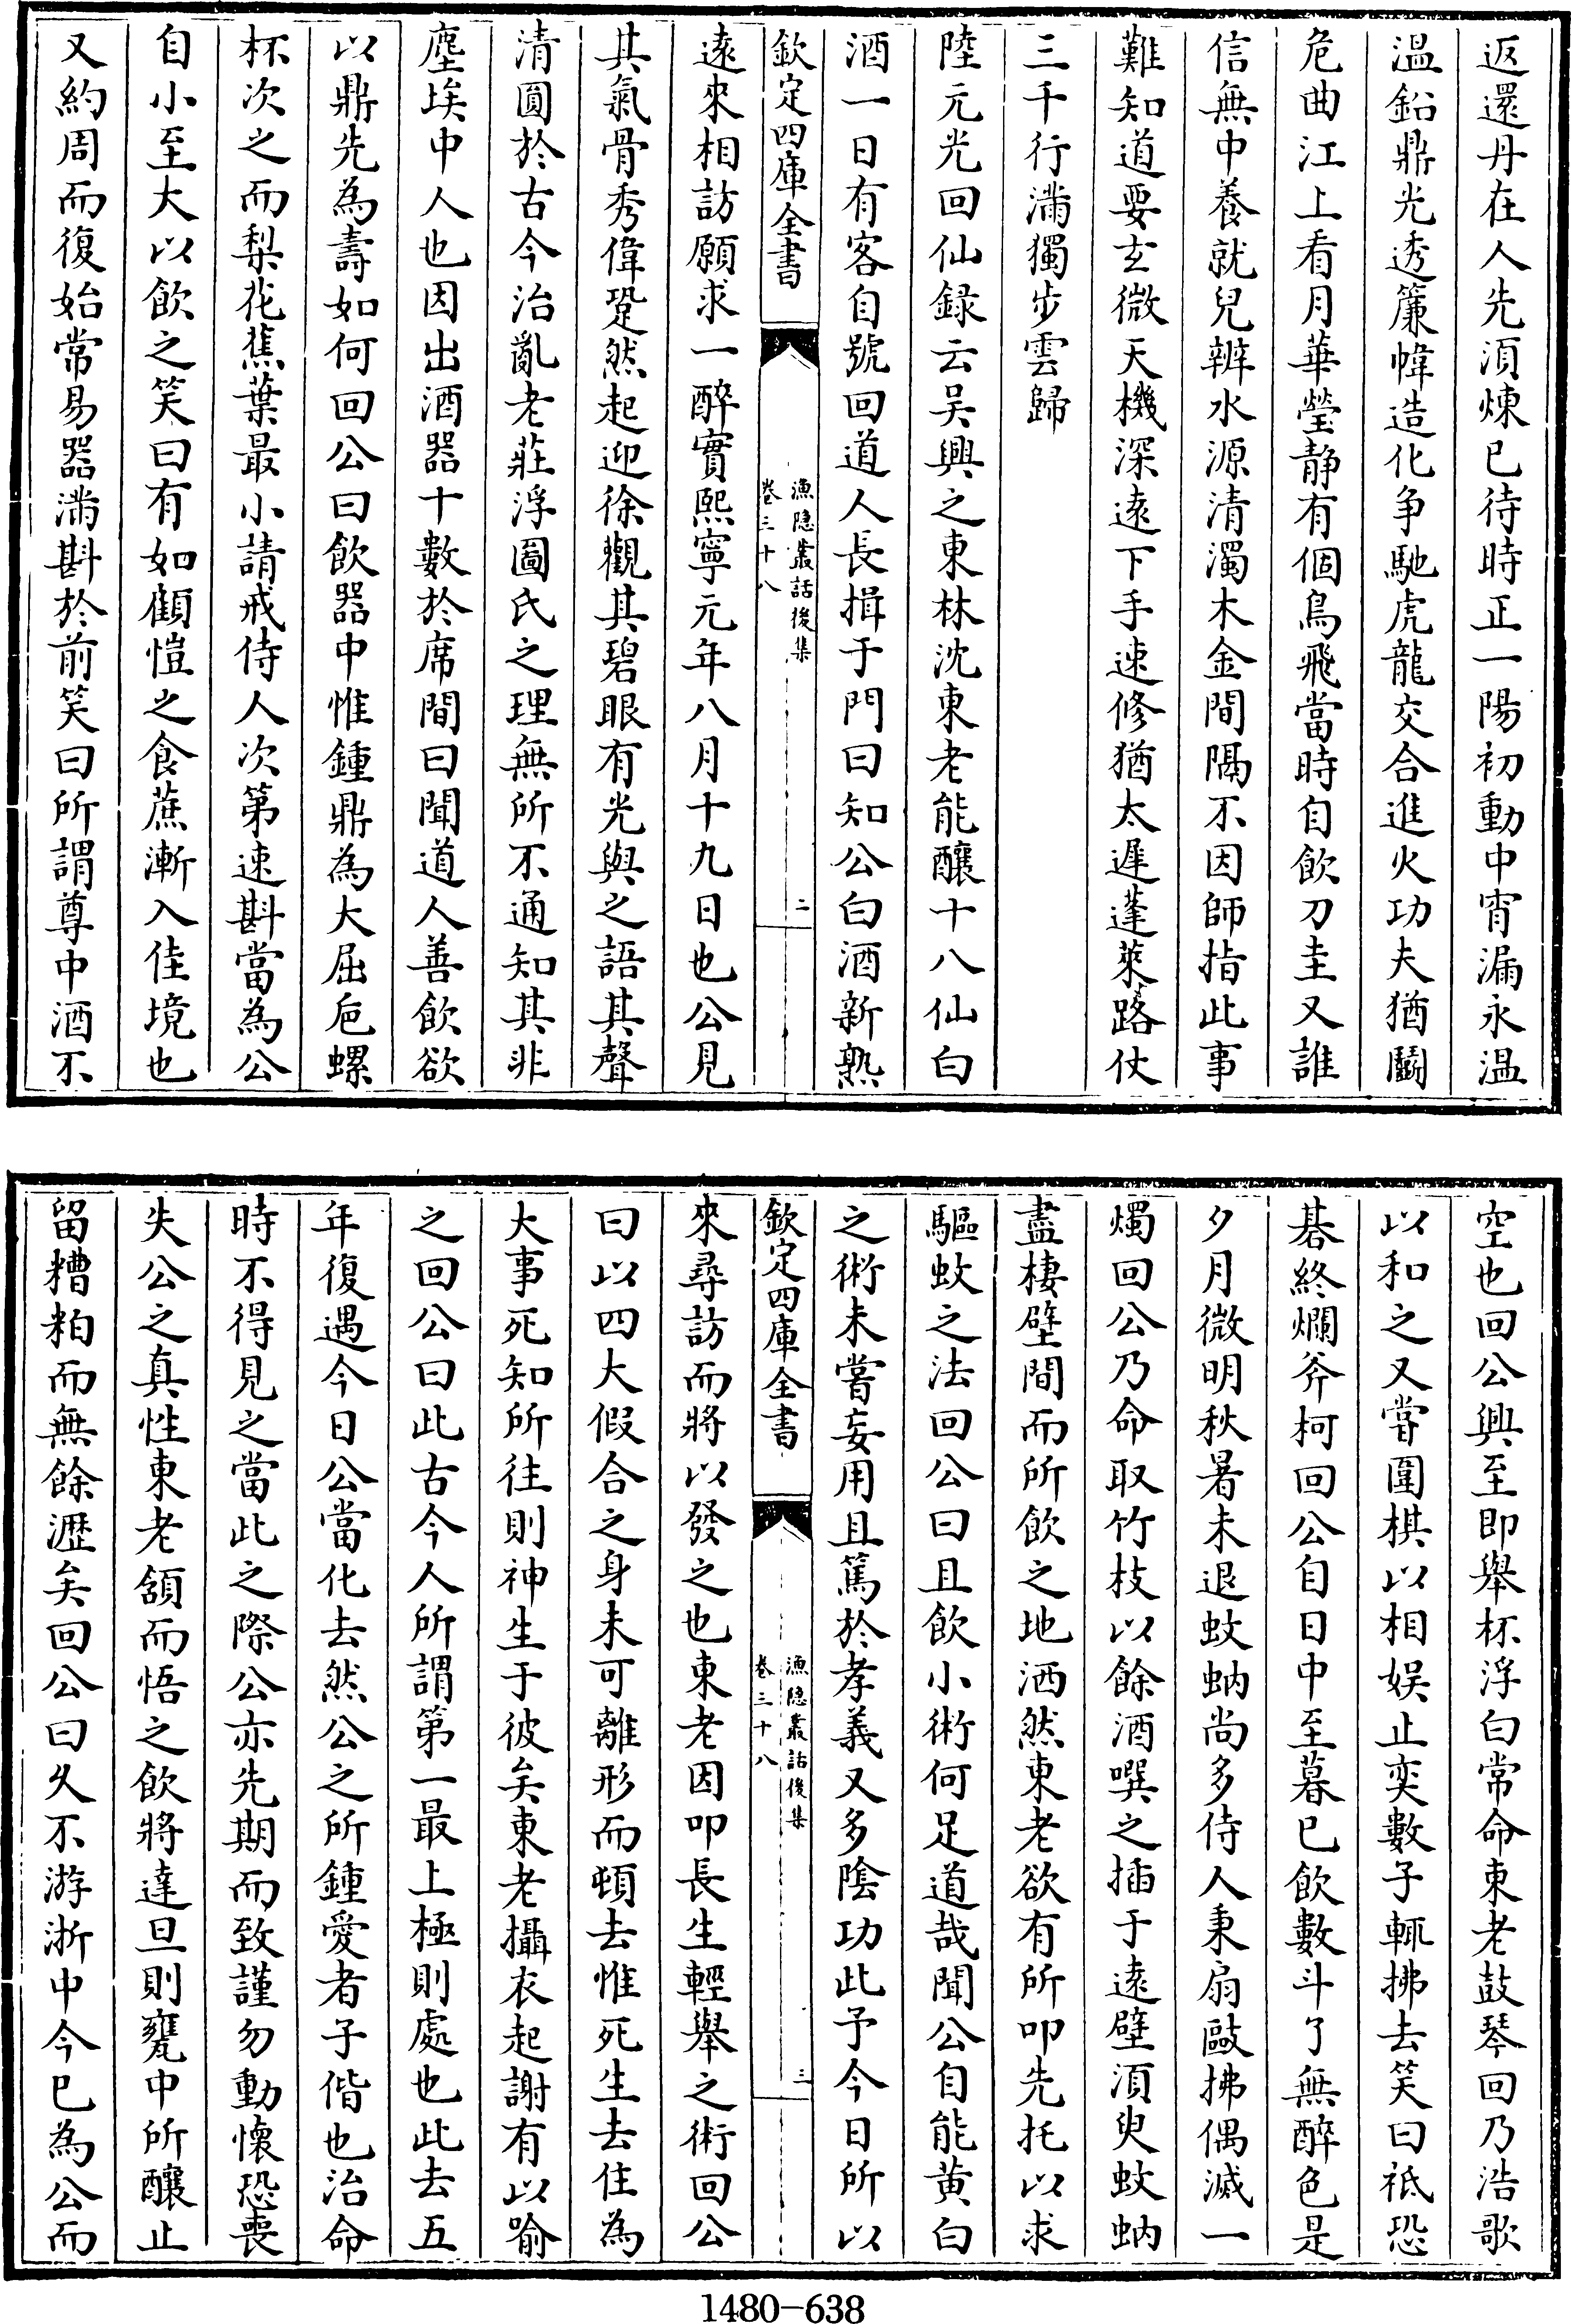 返還丹在人先湏煉已待時正一陽初動中宵漏永溫
溫鉛鼎光透簾幃造化争馳虎龍交合進火功夫猶鬭
危曲江上看月華瑩静有個烏飛當時自飲刀圭又誰
信無中養就兒辨水源清濁木金間隔不因師指此事
難知道要玄微天機深遠下手速修猶太遲蓬萊路仗
三千行滿獨步雲歸
陸元光回仙録云吴興之東林沈東老能釀十八仙白
酒一日有客自號回道人長揖于門曰知公白酒新熟
欽定四庫全書
漁隐叢話後集
卷三十八
二
逺來相訪願求一醉實熙寧元年八月十九日也公見
其氣骨秀偉跫然起迎徐觀其碧眼有光與之語其聲
清圓於古今治亂老莊浮圖氏之理無所不通知其非
塵埃中人也因出酒器十數於席間曰聞道人善飲欲
以鼎先為壽如何回公曰飲器中惟鍾鼎為大屈卮螺
杯次之而梨花蕉葉最小請戒侍人次第速斟當為公
自小至大以飲之笑曰有如顧愷之食蔗漸入佳境也
又約周而復始常易器滿斟於前笑曰所謂尊中酒不
空也回公興至即舉杯浮白常命東老鼓琴回乃浩歌
以和之又嘗圍棋以相娱止奕數子輒拂去笑曰祗恐
碁終爛斧柯回公自日中至暮已飲數斗了無醉色是
夕月微明秋暑未退蚊蚋尚多侍人秉扇敺拂偶滅一
燭回公乃命取竹枝以餘酒噀之插于逺壁湏臾蚊蚋
盡棲壁間而所飲之地洒然東老欲有所叩先托以求
驅蚊之法回公曰且飲小術何足道哉聞公自能黄白
之術未嘗妄用且篤於孝義又多陰功此予今日所以
欽定四庫全書
漁隐叢話後集
卷三十八
三
來尋訪而將以發之也東老因叩長生輕舉之術回公
曰以四大假合之身未可離形而頓去惟死生去住為
大事死知所往則神生于彼矣東老攝衣起謝有以喻
之回公曰此古今人所謂第一最上極則處也此去五
年復遇今日公當化去然公之所鍾愛者子偕也治命
時不得見之當此之際公亦先期而致謹勿動懷恐喪
失公之真性東老頷而悟之飲將達旦則甕中所釀止
留糟粕而無餘瀝矣回公曰乆不游浙中今已為公而
1480-638